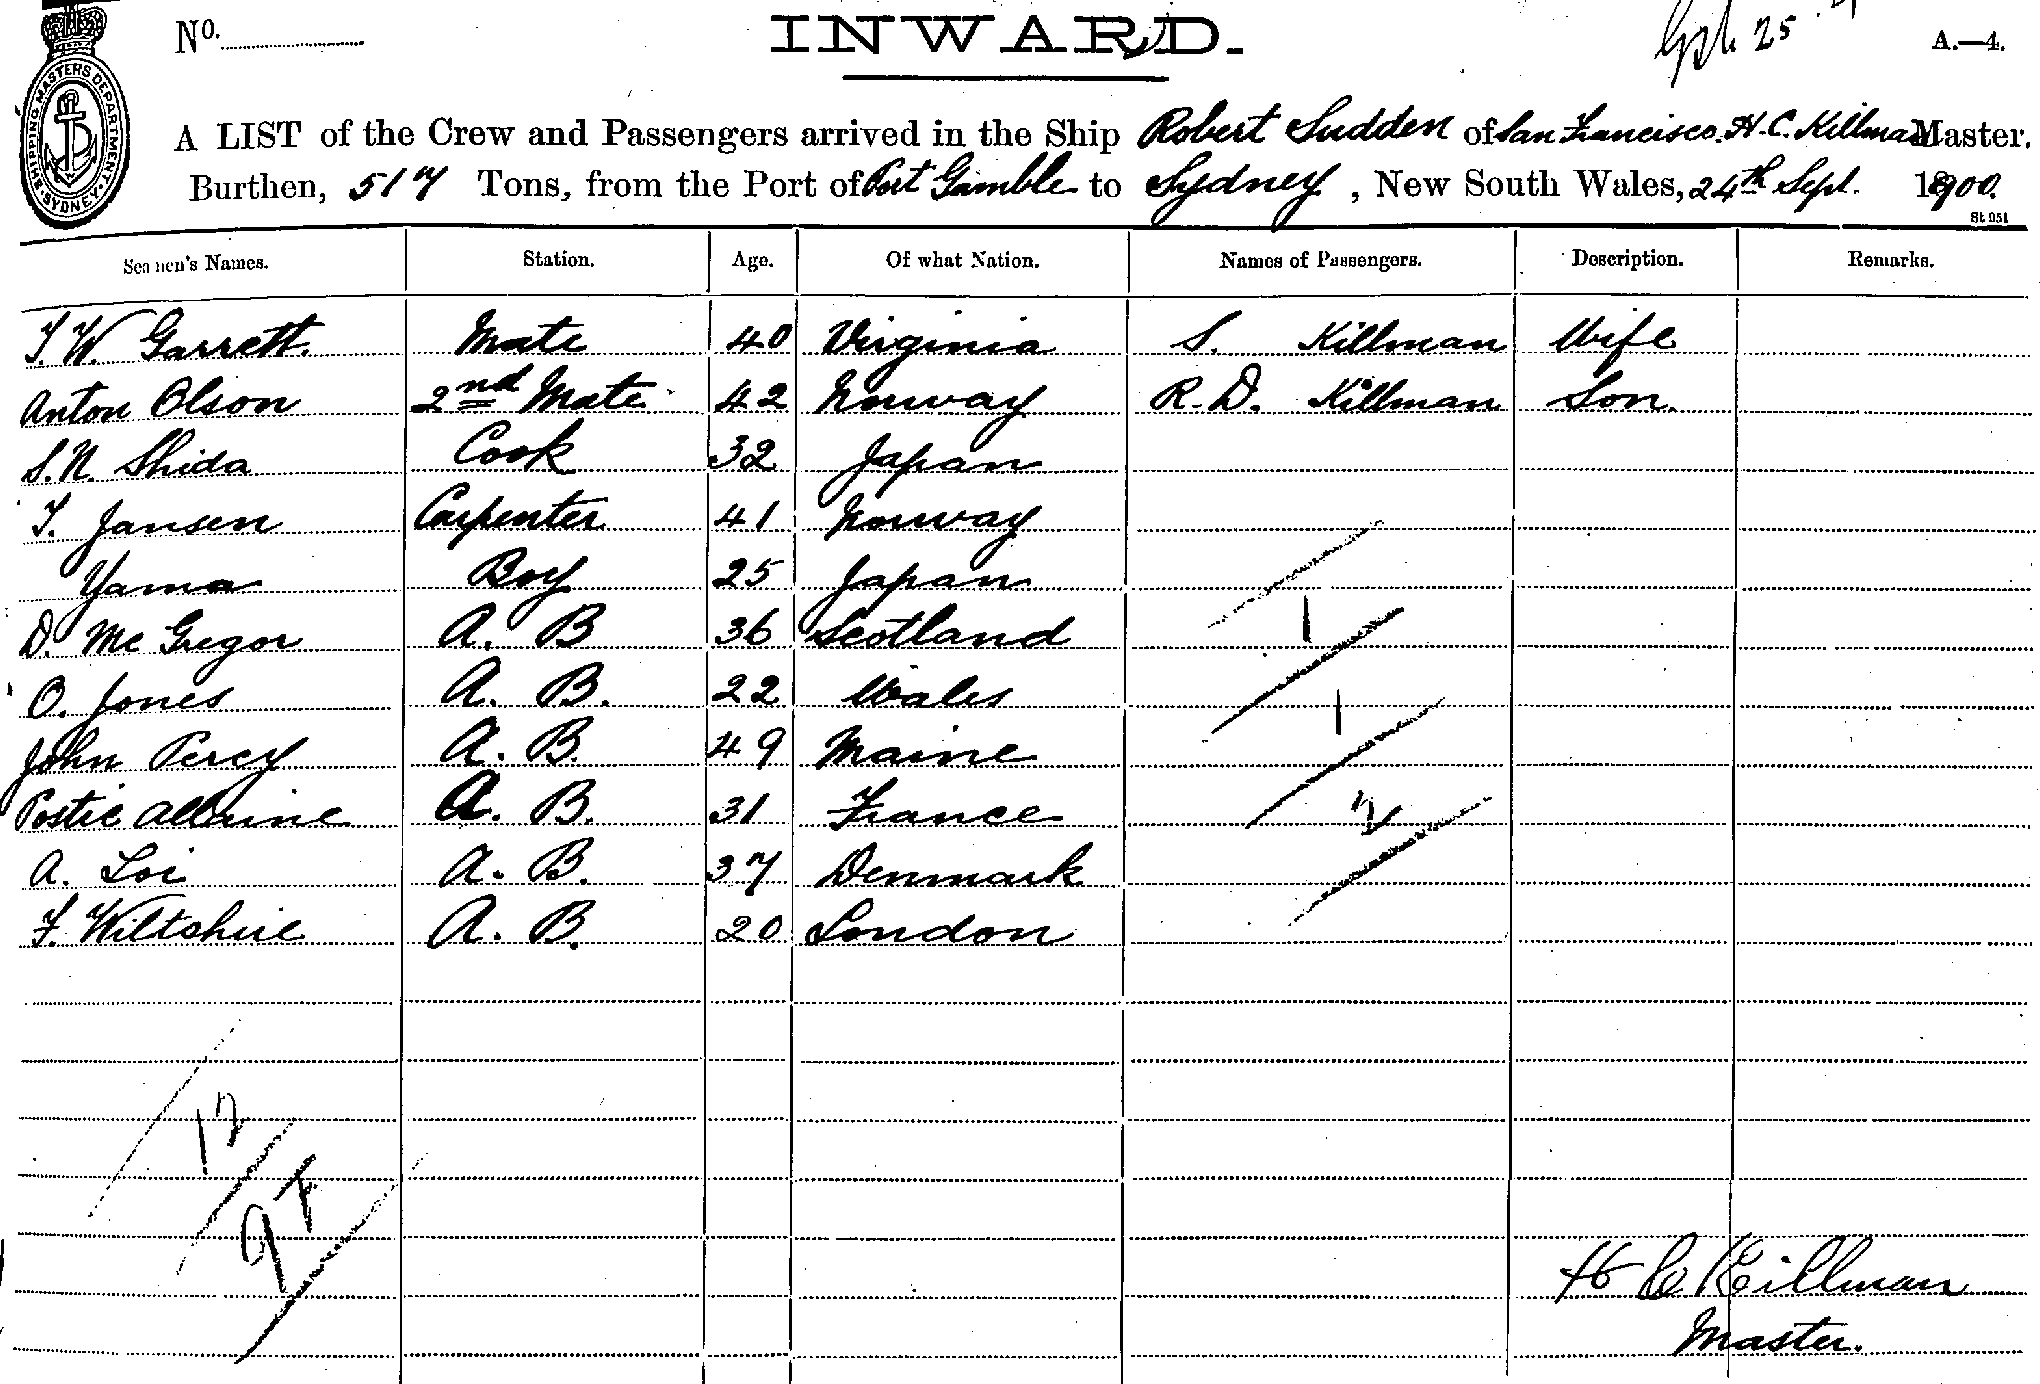 No.
INWARD.
25
A.—4.
SHIPPING MASTERS DEPARTMENT. SYDNEY.
A LIST of the Crew and Passengers arrived in the Ship Robert Sudden of San Francisco. H. C. Killman Master.
Burthen, 517 Tons, from the Port of Port Gamble to Sydney, New South Wales, 24th Sept. 1900.
St 951
Seamen's Names. Station. Age. Of what Nation. Names of Passengers. Description. Remarks.
T. W. Garrett. Mate 40 Virginia S. Killman Wife
Anton Olson 2nd Mate 42 Norway R. D. Killman Son.
S. N. Shida Cook 32 Japan
T. Jansen Carpenter 41 Norway
Yama Boy 25 Japan
D. McGregor A. B 36 Scotland
O. Jones A. B. 22 Wales
John Percy A. B. 49 Maine
Postic A. B. 31 France
A. Loi A. B. 37 Denmark
F. Wiltshire A. B. 20 London
1
1
2
12
H C Killman
Master.